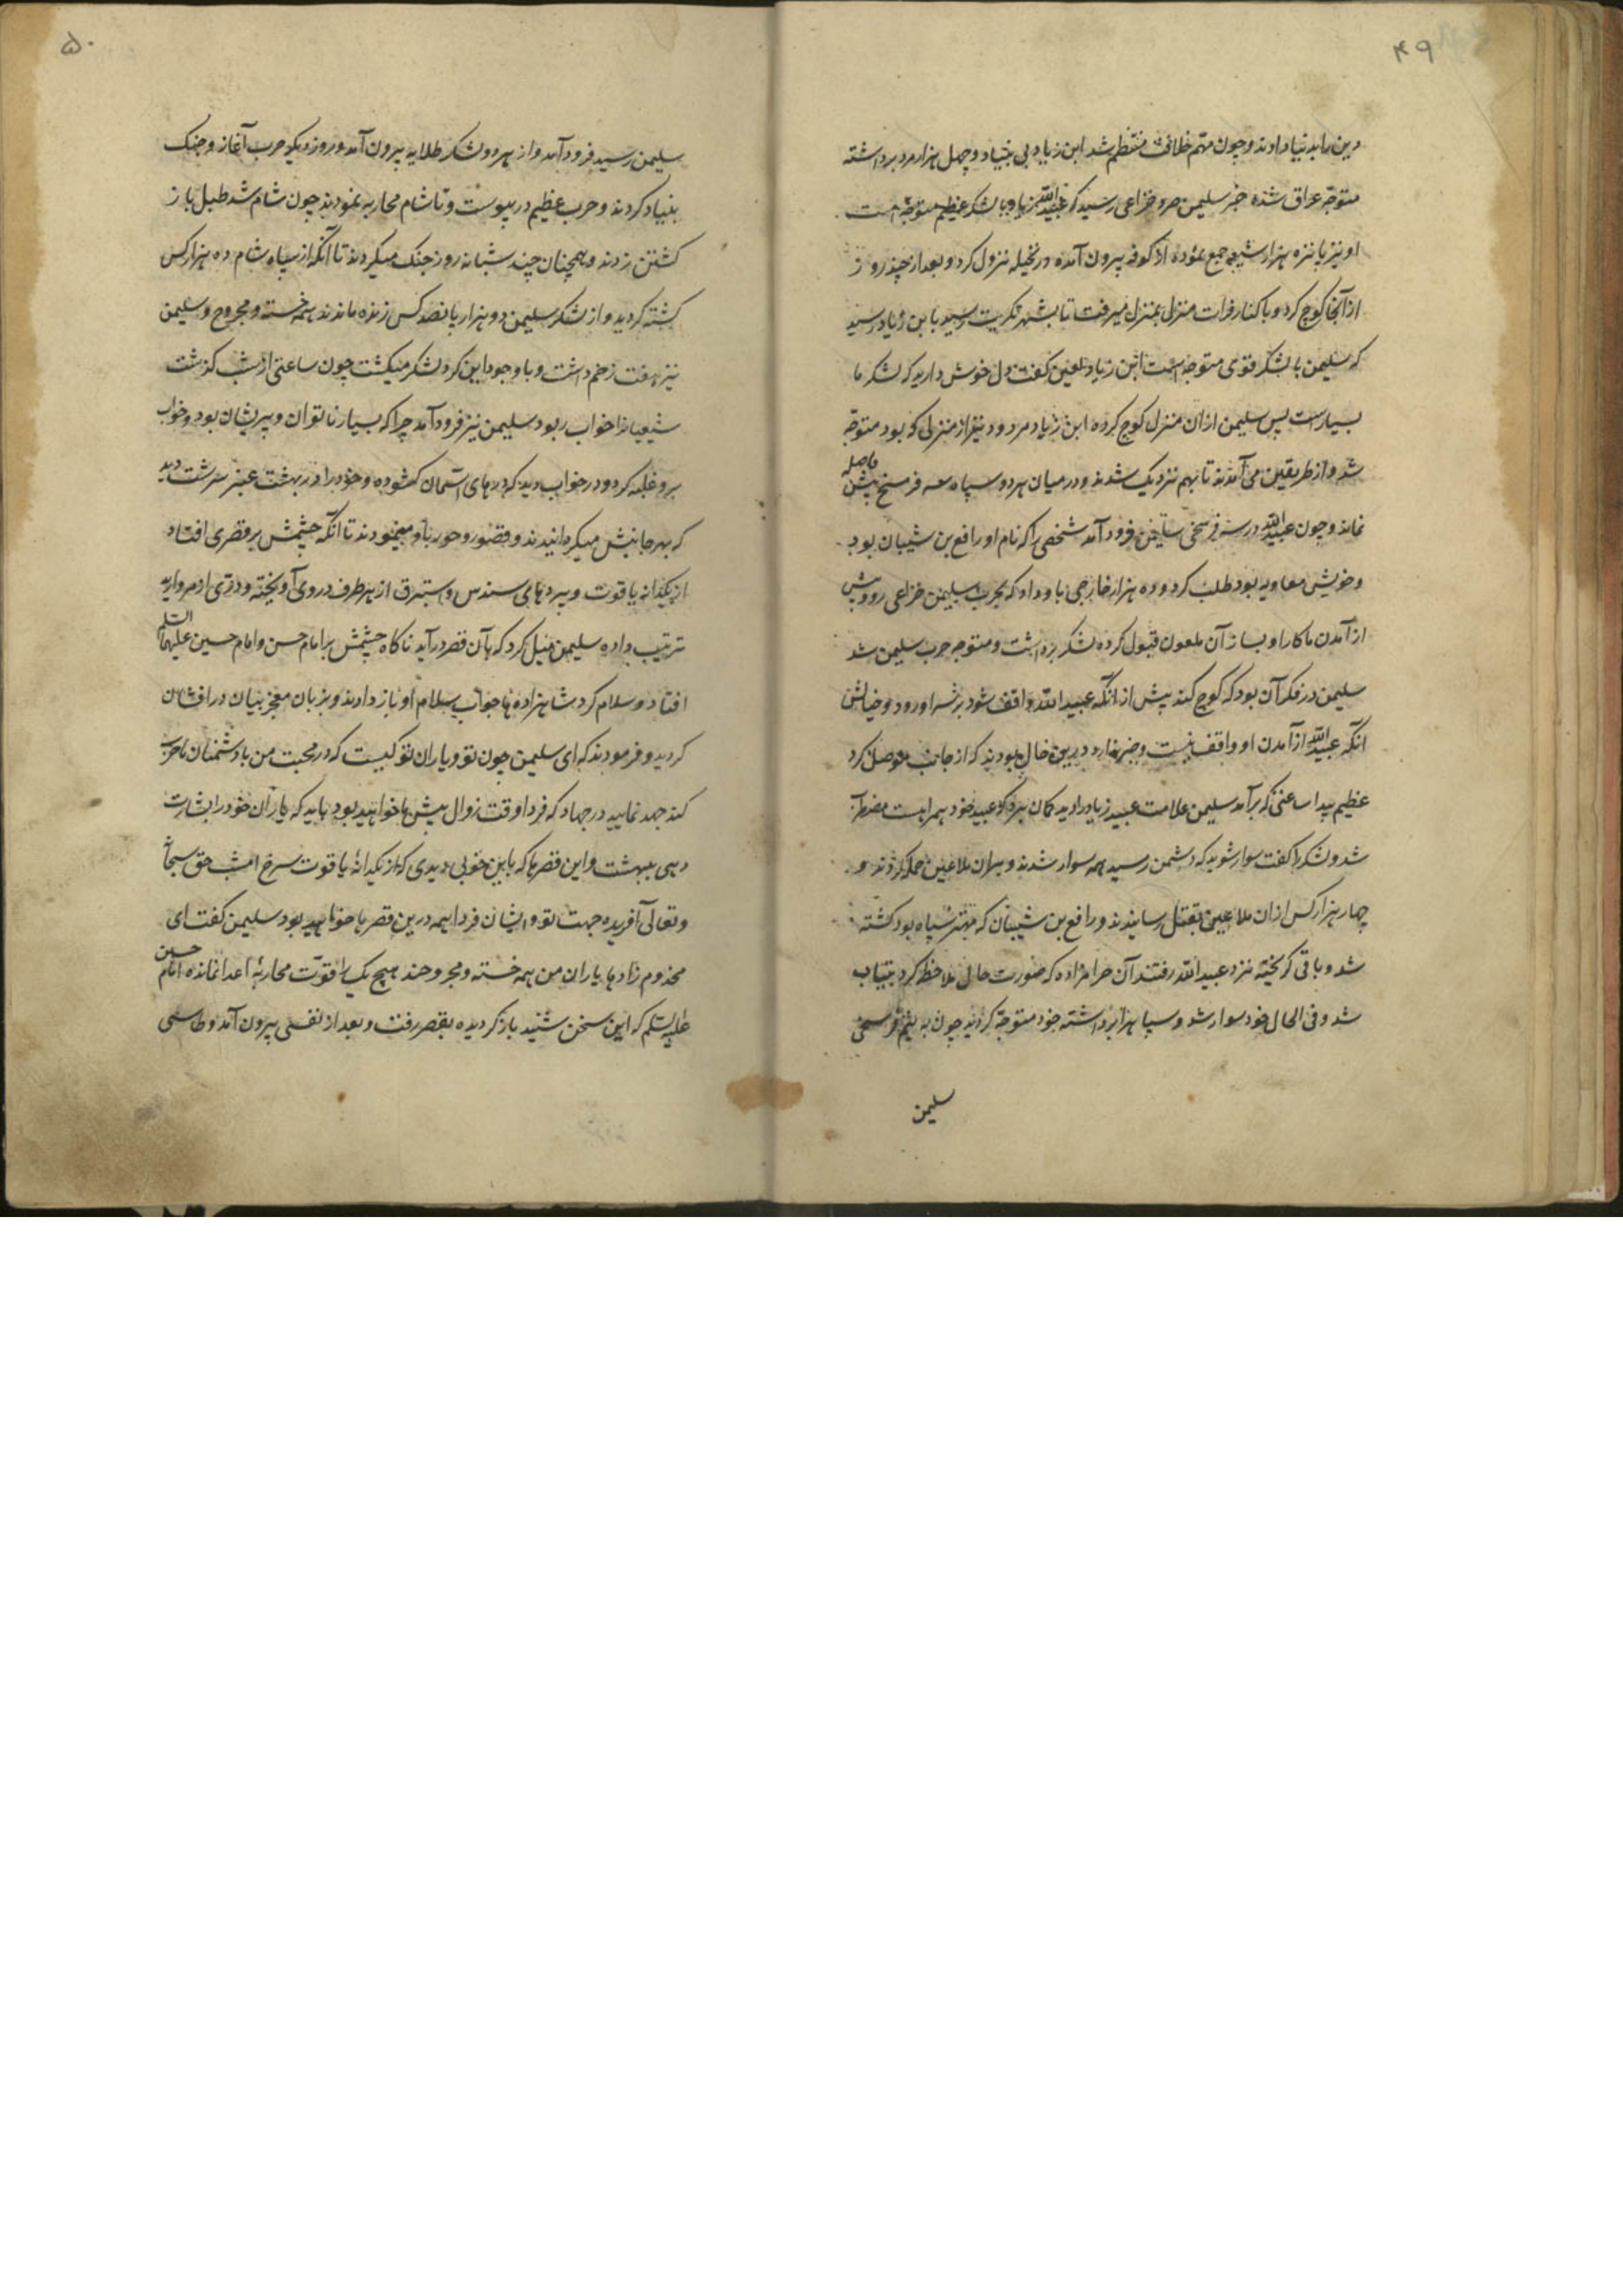 ۴۹
دین را بدنیا دادند و چون مهم خلافت منتظم شد ابن زیاد بی بنیاد و چهل هزار مرد برداشته
متوجه عراق شده خبر سلیمن صرد خزاعی رسید که عبیدالله زیاد با لشکر عظیم متوجه است
او نیز پانزه هزار شیعه جمع نموده از کوفه بیرون آمده در نخیله نزول کرد و بعد از چند روز
از آنجا کوچ کرد و با کنار فرات منزل بمنزل میرفت تا بشهر تکریت رسید بابن زیاد رسید
که سلیمن با لشکر قوی متوجه است ابن زیاد لعین گفت دل خوش دارید که لشکر ما
بسیارست پس سلیمن ازان منزل کوچ کرده ابن زیاد مردود نیز از منزلی که بود متوجه
شد و از طریقین می آمدند تا بهم نزدیک شدند و در میان هر دو سپاه سه فرسنح بیش فاصله
نماند و چون عبیدالله در سه فرسخی سلیمن فرود آمد شخصی را که نام او رافع بن شیبان بود
و خویش معاویه بود طلب کرد و ده هزار خارجی باو داد که بحرب سلیمن خزاعی رو و پیش
از آمدن ما کار او بساز آن ملعون قبول کرده لشکر برداشت و متوجه حرب سلیمن شد
سلیمن در فکر آن بود که کوچ کند پیش از انکه عبیدالله واقف شود بر سر او رود و خیالش
انکه عبیدالله از آمدن او واقف نیست و خبر ندارد درین حال بودند که از جانب موصل گرد
عظیم پیدا ساعتی که برآمد سلیمن علامت عبید زیاد را دید کمان برد که عبید خود همراهست مضطرب
شد و لشکر را گفت سوار شوید که دشمن رسید همه سوار شدند و بران ملاعین حمله کردند و
چهار هزار کس ازان ملاعین بقتل رسانیدند و رافع بن شیبان که مهتر سپاه بود کشته
شد و باقی گریخته نزد عبیدالله رفتند آن حرامزاده که صورت حال ملاحظه کرد بیتاب
شد و فی الحال خود سوار شد و سپاه را برداشته خود متوجه گردید چون به نیم فرسخی
سلیمن
۵۰
سلیمن رسید فرود آمد و از هر دو لشکر طلایه بیرون آمد و روز دیگر حرب آغاز و جنک
بنیاد کردند و حرب عظیم در پیوست و تا شام محاربه نمودند چون شام شد طبل باز
کشتن زدند و همچنان چند شبانه روز جنک میکردند تا آنکه از سپاه شام ده هزار کس
کشته کردید و از لشکر سلیمن دو هزار پانصد کس زنده ماندند همه خسته و مجروح و سلیمن
نیز هفت زخم داشت و با وجود این کرد لشکر میکشت چون ساعتی از شب کذشت
شیعیانرا خواب ربود سلیمن نیز فرود آمد چرا که بسیار ناتوان و پریشان بود و خواب
برو غلبه کرد و در خواب دید که درهای آسمان کشوده و خود را در بهشت عنبر سرشت دید
که بهر جانبش میکردانیدند و قصور و حور باو مینمودند تا انکه چشمش بر قصری افتاد
از یکدانه یاقوت و پردهای سندس و استبرق از هر طرف در وی آویخته و دری از مروارید
ترتیب داده سلیمن میل کرد که بآن قصر درآید ناکاه چشمش بر امام حسن و امام حسین علیهما السلم
افتاد و سلام کرد شاهزاده ها جواب سلام او باز دادند و بزبان معجز بیان درافشان
کردید و فرمودند که ای سلیمن چون تو و یاران تو کیست که در محبت من با دشمنان ما حرب
کند جهد نمایید در جهاد که فردا وقت زوال پیش ما خواهید بود باید که یاران خود را بشارت
دهی ببهشت و این قصرها که باین خوبی دیدی که از یکدانۀ یاقوت سرخ است حق سبحانه
و تعالی آفریده جهت تو و ایشان فردا همه درین قصرها خواهید بود سلیمن کفت ای
مخدوم زادها یاران من همه خسته و مجروحند هیچ یک را قوت محاربۀ اعدا نمانده امام حسین
علیه السلم که این سخن شنید باز کردیده بقصر رفت و بعد از نفسی بیرون آمد و طاسی